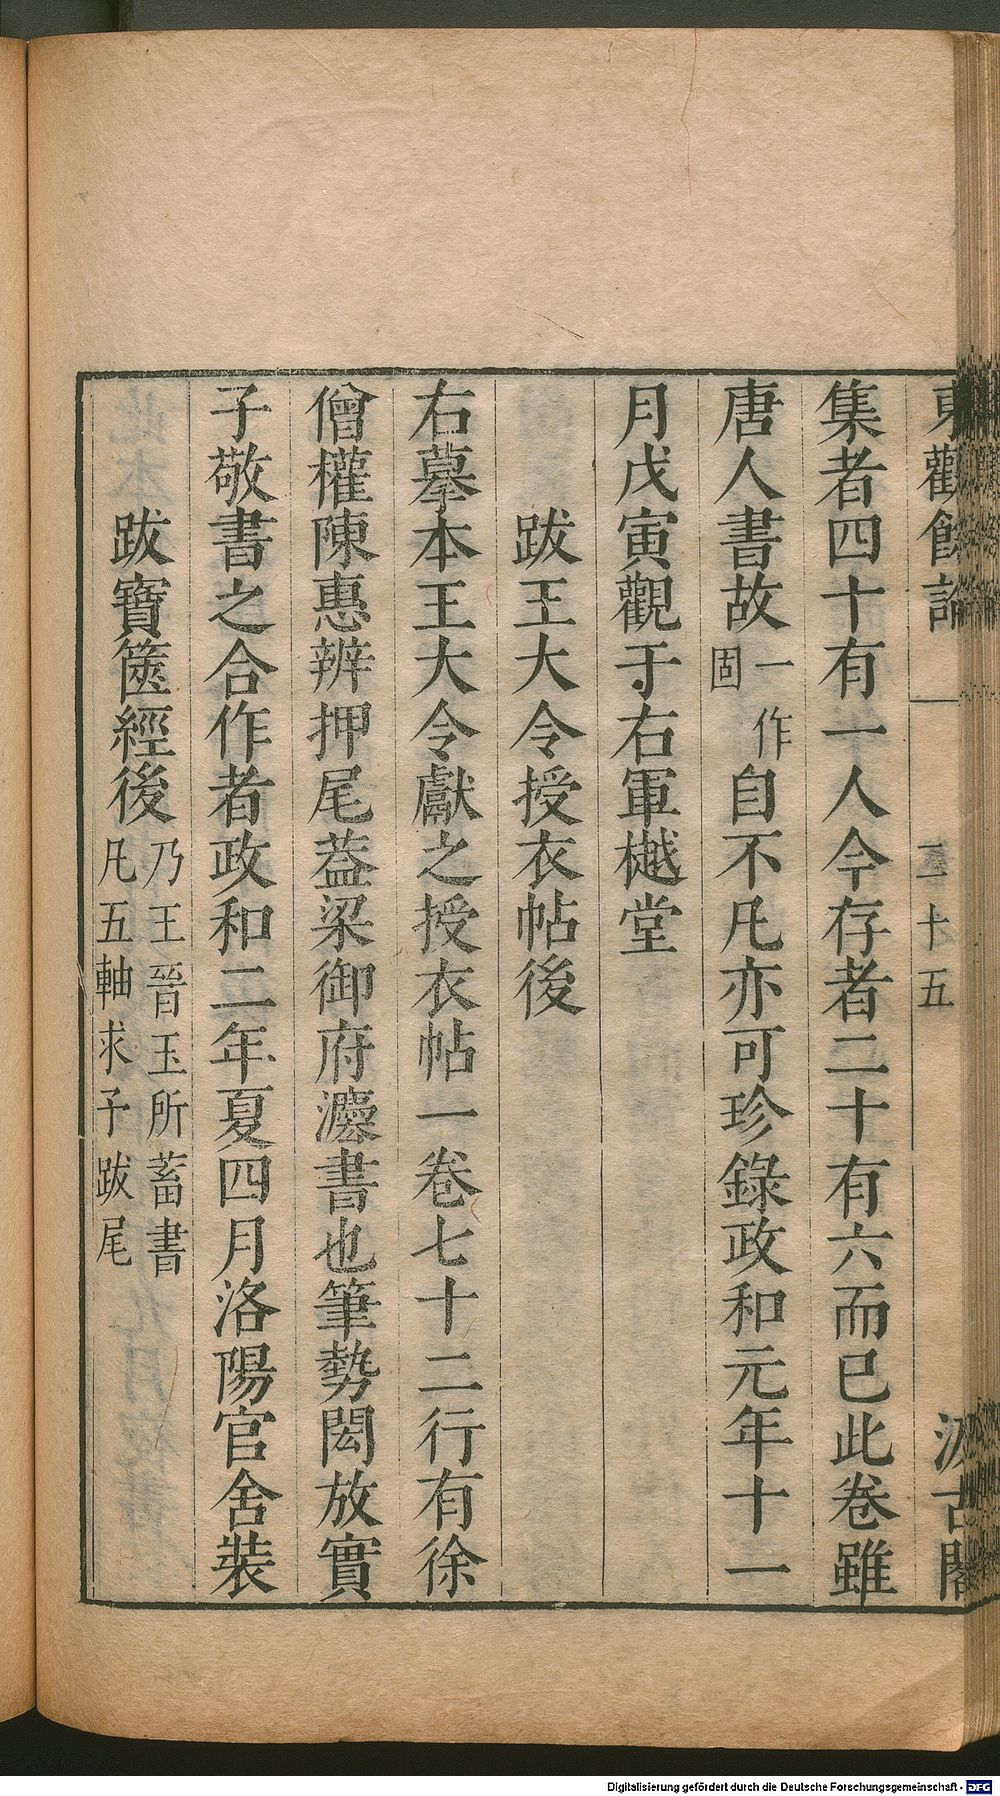 東觀餘論 二十五 汲古閣
集者四十有一人今存者二十有六而已此卷雖
唐人書故一作固自不凡亦可珍錄政和元年十一
月戊寅觀于右軍樾堂
跋王大令授衣帖後
右摹本王大令獻之授衣帖一卷七十二行有徐
僧權陳惠辨押尾葢梁御府灋書也筆勢閎放實
子敬書之合作者政和二年夏四月洛陽官舍裝
跋寶篋經後乃王晉玉所蓄書凡五軸求予跋尾
Digitalisierung gefördert durch die Deutsche Forschungsgemeinschaft - DFG